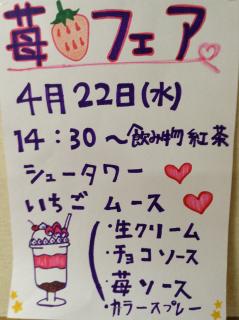 苺フェア
4月22日(水)
14:30～飲み物 紅茶
シュータワー
いちご ムース
・生クリーム
・チョコソース
・苺ソース
・カラースプレー